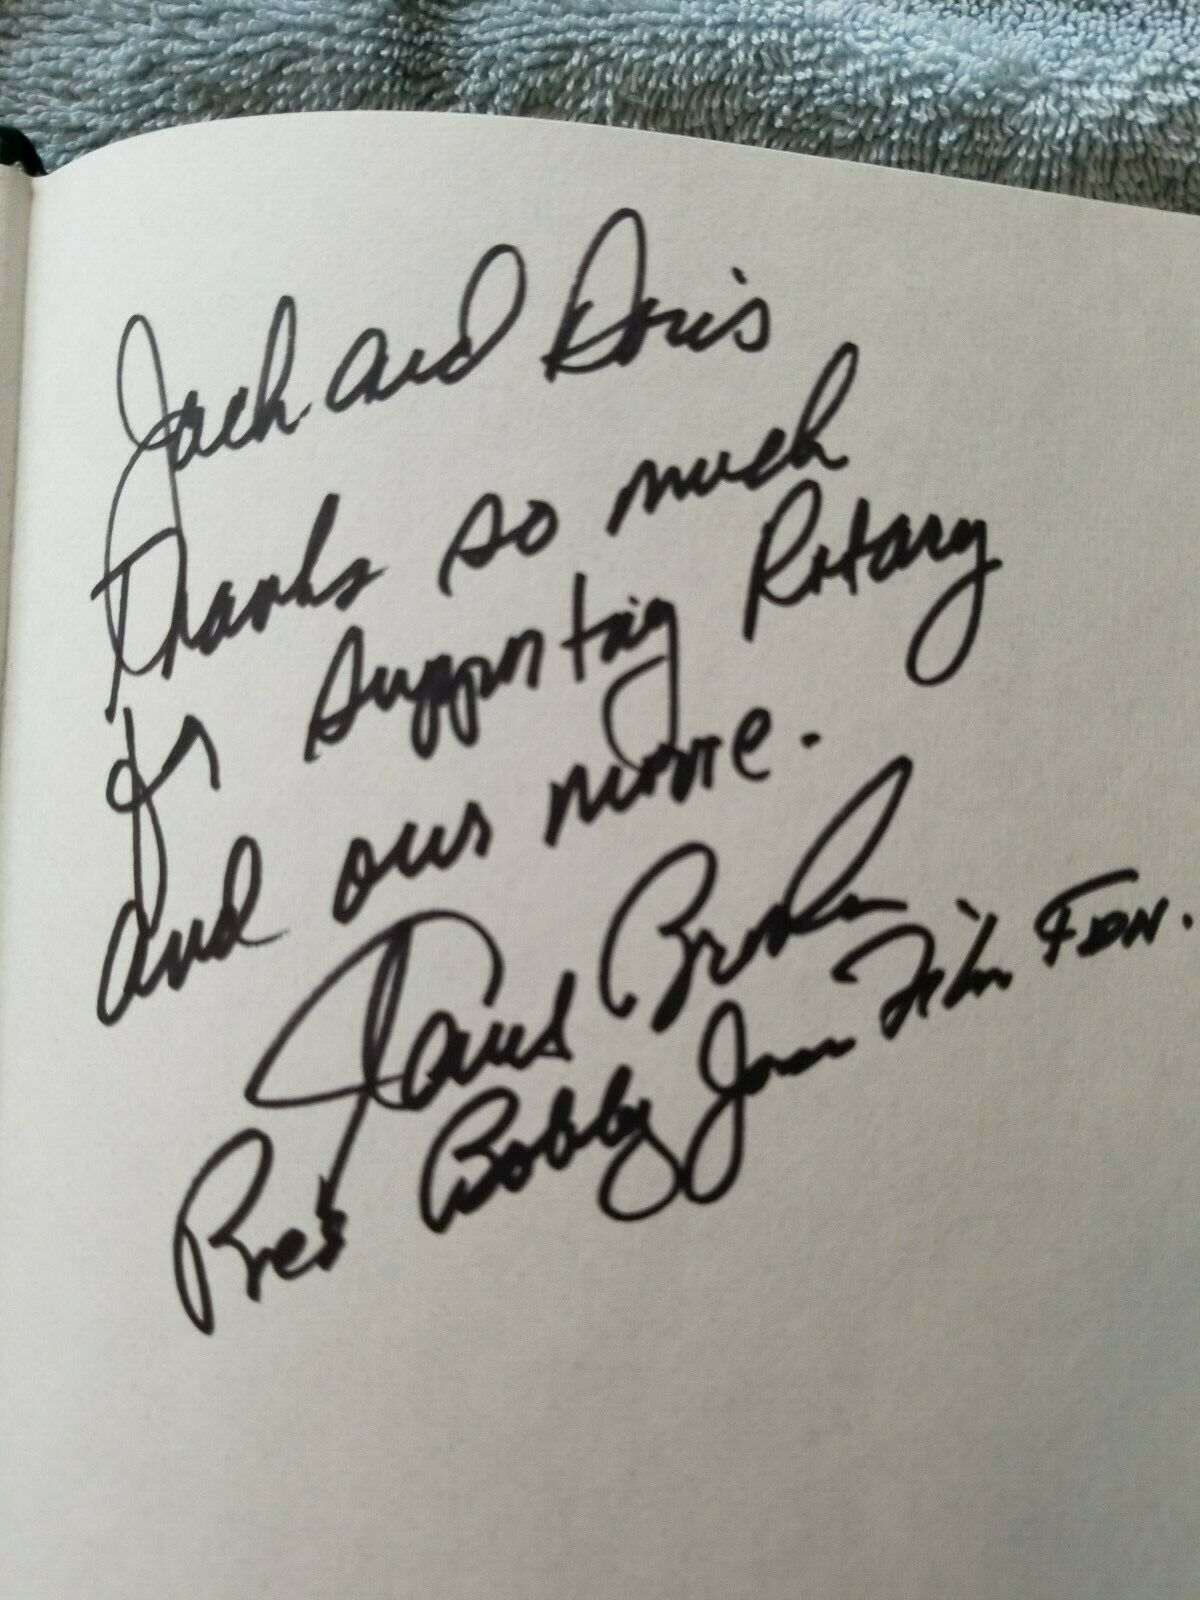 Jack and Doris
Thanks so much
for supporting Rotary
and our movie.
Pres Bobby Jones Film FDN.